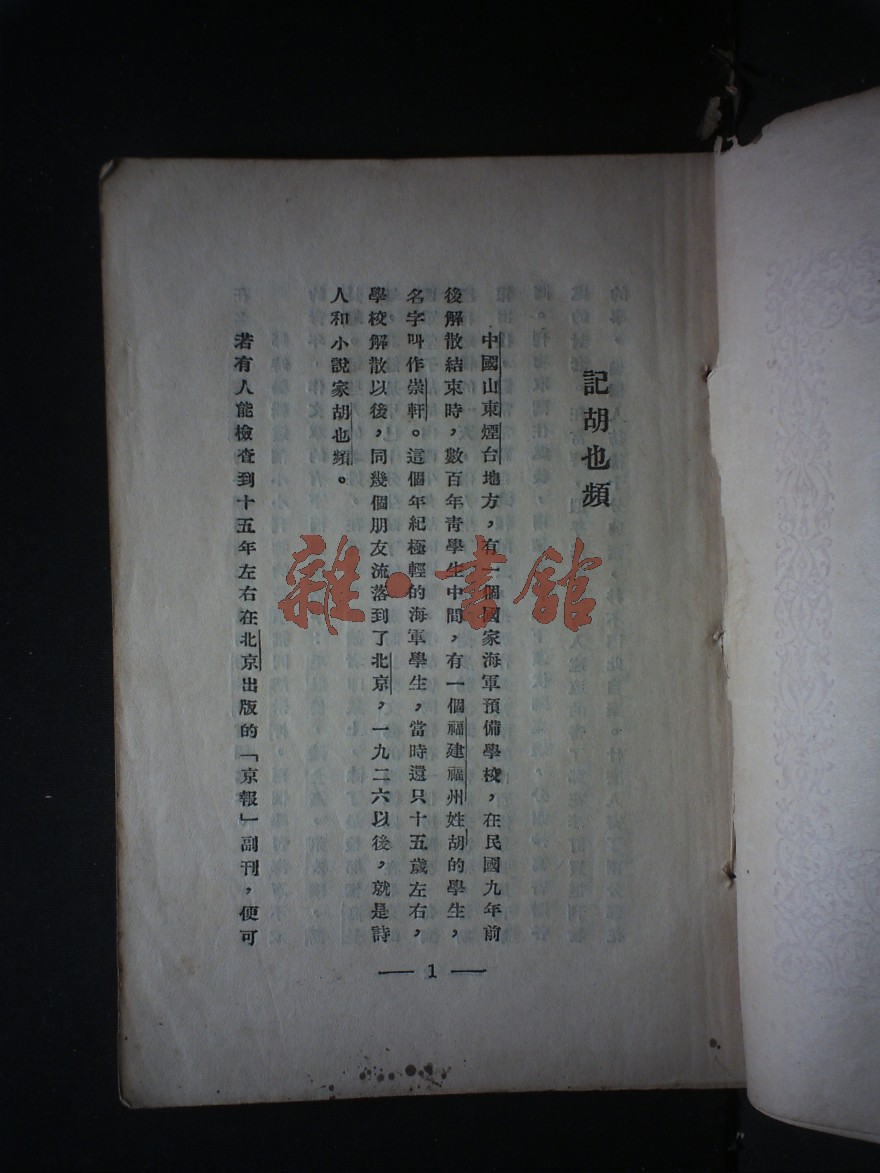 記胡也頻
中國山東煙台地方，有一個國家海軍預備學校，在民國九年前
後解散結束時，數百年青學生中間，有一個福建福州姓胡的學生，
名字叫作崇軒。這個年紀極輕的海軍學生，當時還只十五歲左右，
學校解散以後，同幾個朋友流落到了北京，一九二六以後，就是詩
人和小說家胡也頻。
若有人能檢查到十五年左右在北京出版的「京報」副刊，便可
— 1 —
雜·書館